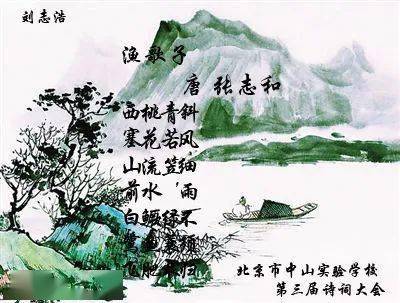 刘志浩
渔歌子
唐 张志和
西塞山前白鹭飞
桃花流水鳜鱼肥
青若笠，绿蓑衣
斜风细雨不须归
北京市中山实验学校
第三届诗词大会